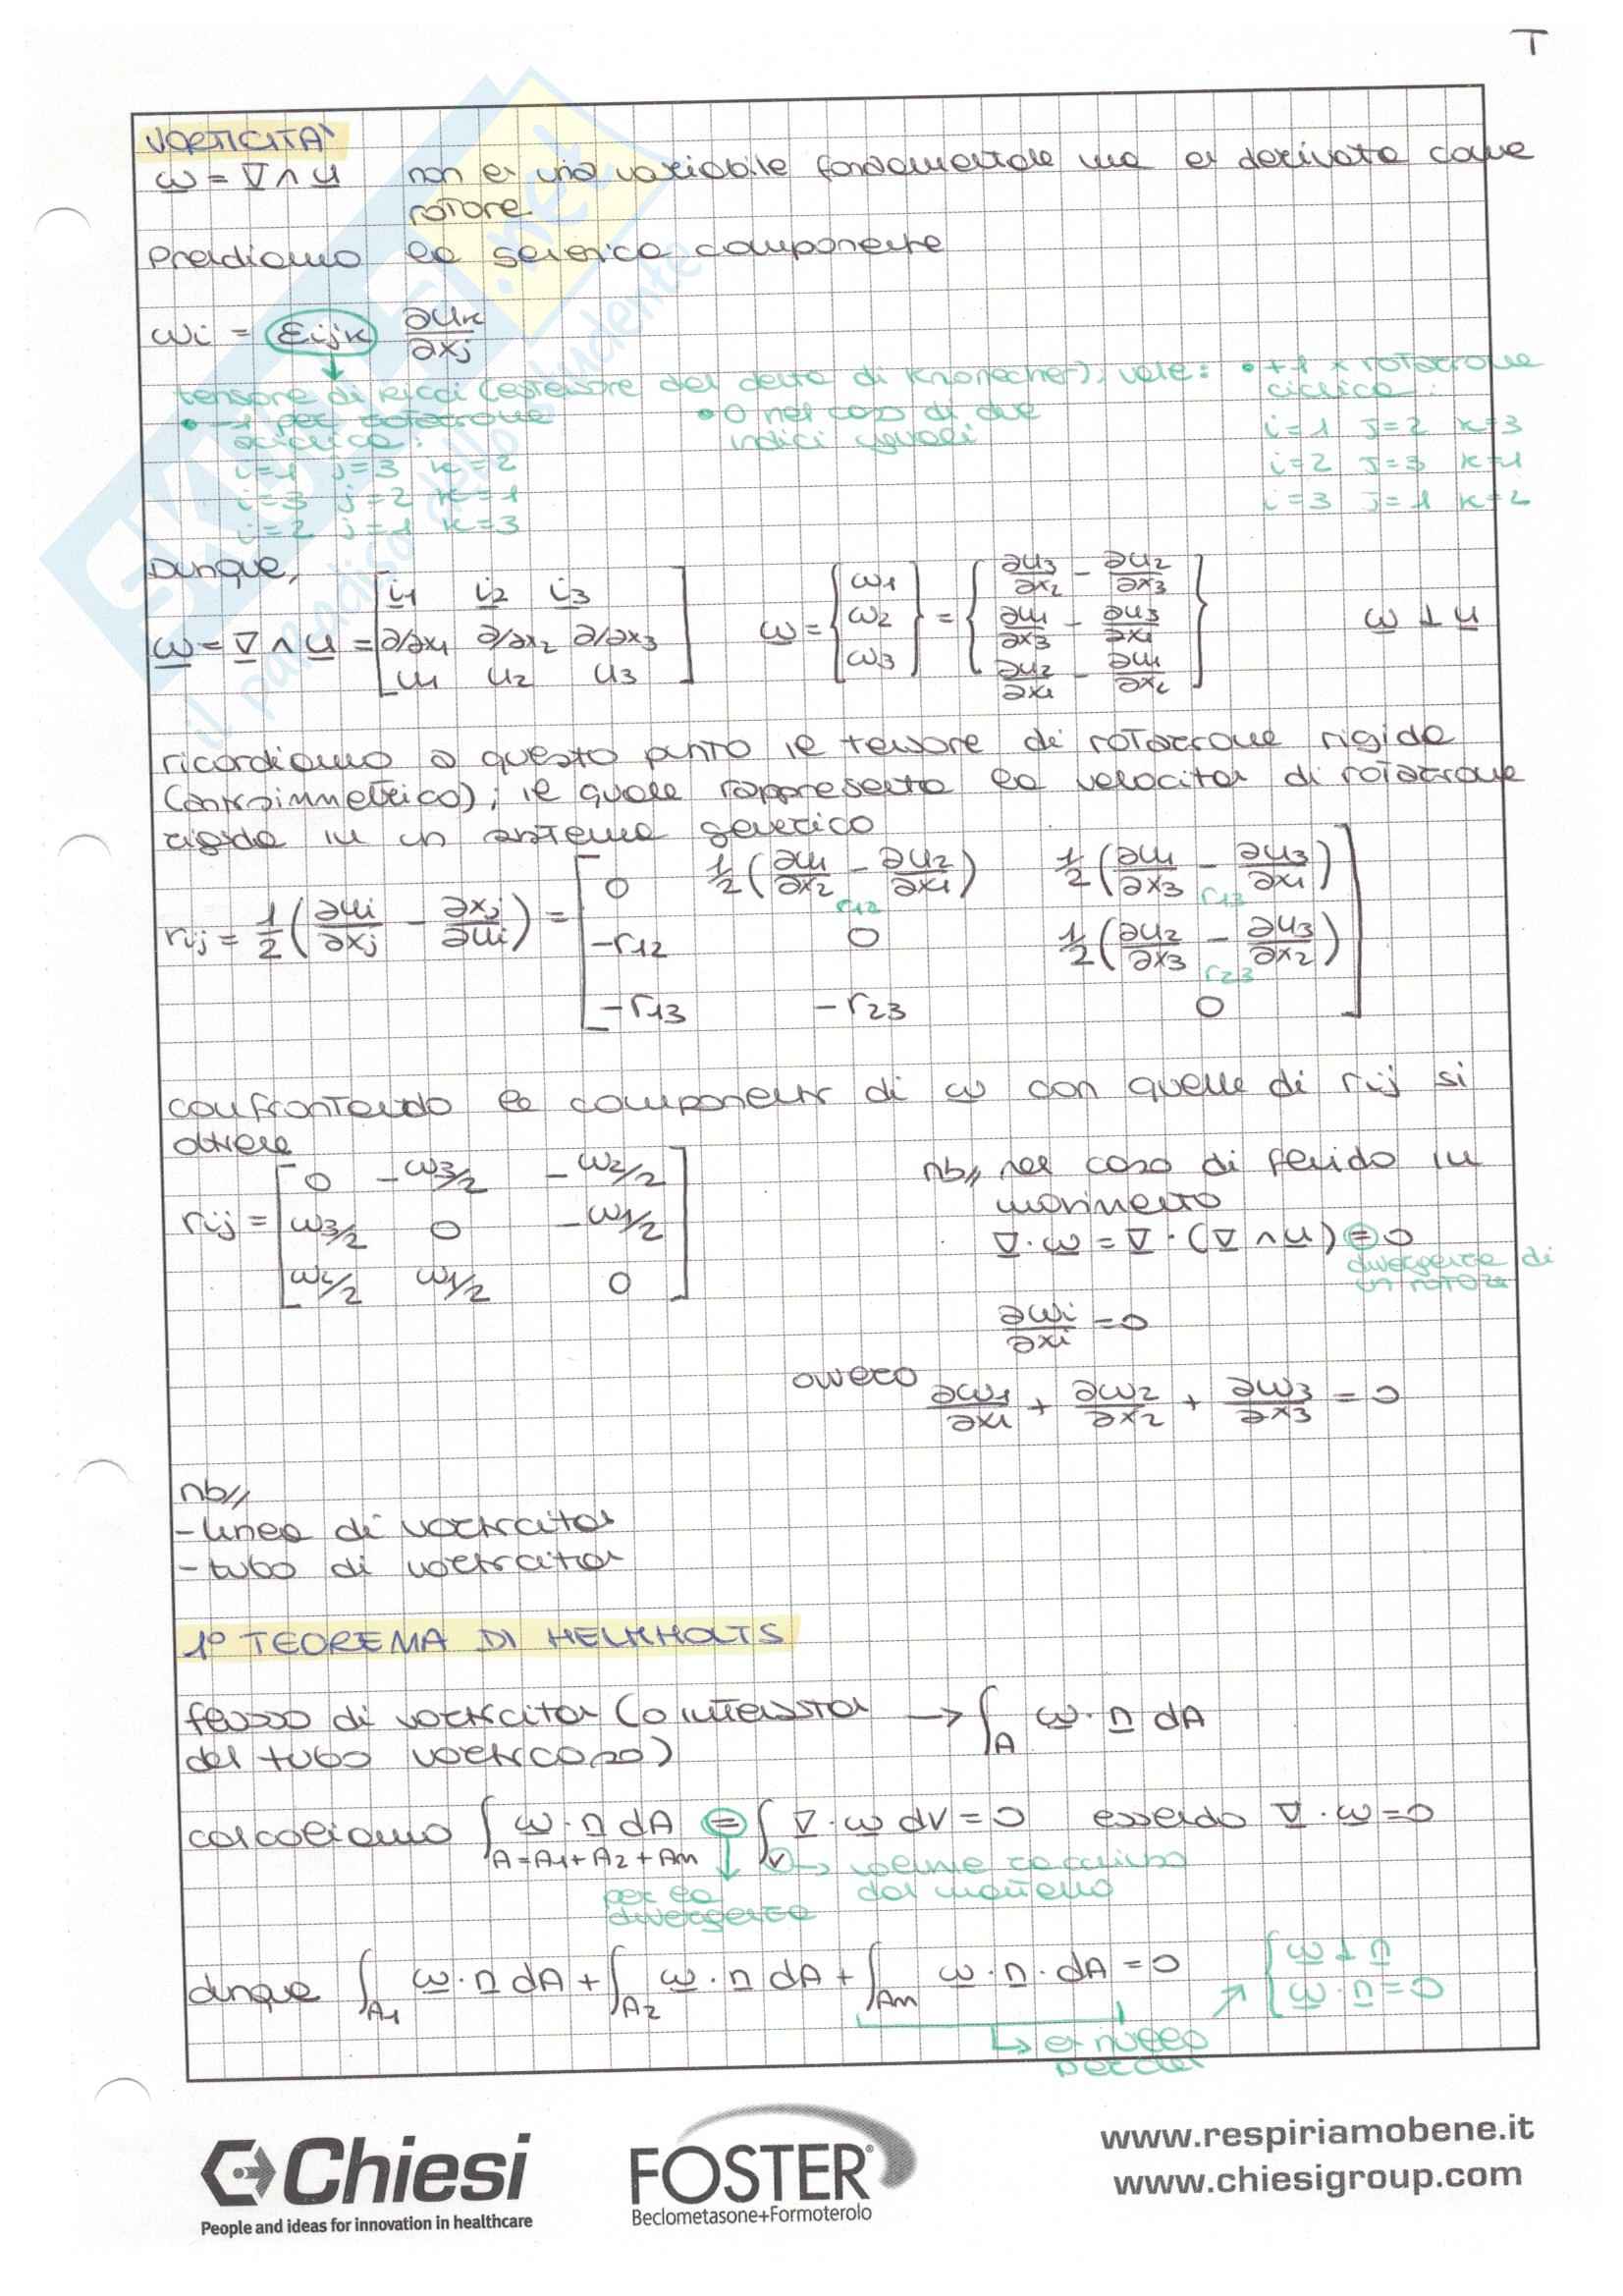 T
VORTICITA'
ω = ∇ ∧ u non è una variabile fondamentale ma è derivata come
rotore
Prendiamo la generica componente
ωi = εijk ∂uk/∂xj
tensore di Ricci (estensore del delta di Kronecher), vale: • +1 x rotazione
ciclica:
• -1 per rotazione
aciclica:
• 0 nel caso di due
indici uguali
i=1 j=2 k=3
i=2 j=3 k=1
i=3 j=1 k=2
i=1 j=3 k=2
i=3 j=2 k=1
i=2 j=1 k=3
Dunque,
ω = ∇ ∧ u = [i1 i2 i3
∂/∂x1 ∂/∂x2 ∂/∂x3
u1 u2 u3]
ω = {ω1 ω2 ω3} = {∂u3/∂x2 - ∂u2/∂x3
∂u1/∂x3 - ∂u3/∂x1
∂u2/∂x1 - ∂u1/∂x2}
ω ⊥ u
ricordiamo a questo punto il tensore di rotazione rigida
(antisimmetrico), il quale rappresenta la velocità di rotazione
rigida in un sistema generico
rij = 1/2 (∂ui/∂xj - ∂xj/∂ui) = [0 1/2 (∂u1/∂x2 - ∂u2/∂x1) 1/2 (∂u1/∂x3 - ∂u3/∂x1)
r12 r13
-r12 0 1/2 (∂u2/∂x3 - ∂u3/∂x2)
r23
-r13 -r23 0]
confrontando le componenti di ω con quelle di rij si
ottiene
rij = [0 -ω3/2 -ω2/2
ω3/2 0 -ω1/2
ω2/2 ω1/2 0]
nb// nel caso di fluido in
movimento
∇ · ω = ∇ · (∇ ∧ u) = 0
divergenza di
un rotore
∂ωi/∂xi = 0
ovvero ∂ω1/∂x1 + ∂ω2/∂x2 + ∂ω3/∂x3 = 0
nb//
- linea di vorticità
- tubo di vorticità
1° TEOREMA DI HELMHOLTS
flusso di vorticità (o intensità → ∫A ω · n dA
del tubo vorticoso)
calcoliamo ∫A=A1+A2+Am ω · n dA = ∫V ∇ · ω dV = 0 essendo ∇ · ω = 0
→ volume racchiuso
dal mantello
per la
divergenza
dunque ∫A1 ω · n dA + ∫A2 ω · n dA + ∫Am ω · n · dA = 0
ω ⊥ n
ω · n = 0
↳ è nullo
perché
Chiesi
People and ideas for innovation in healthcare
FOSTER®
Beclometasone+Formoterolo
www.respiriamobene.it
www.chiesigroup.com